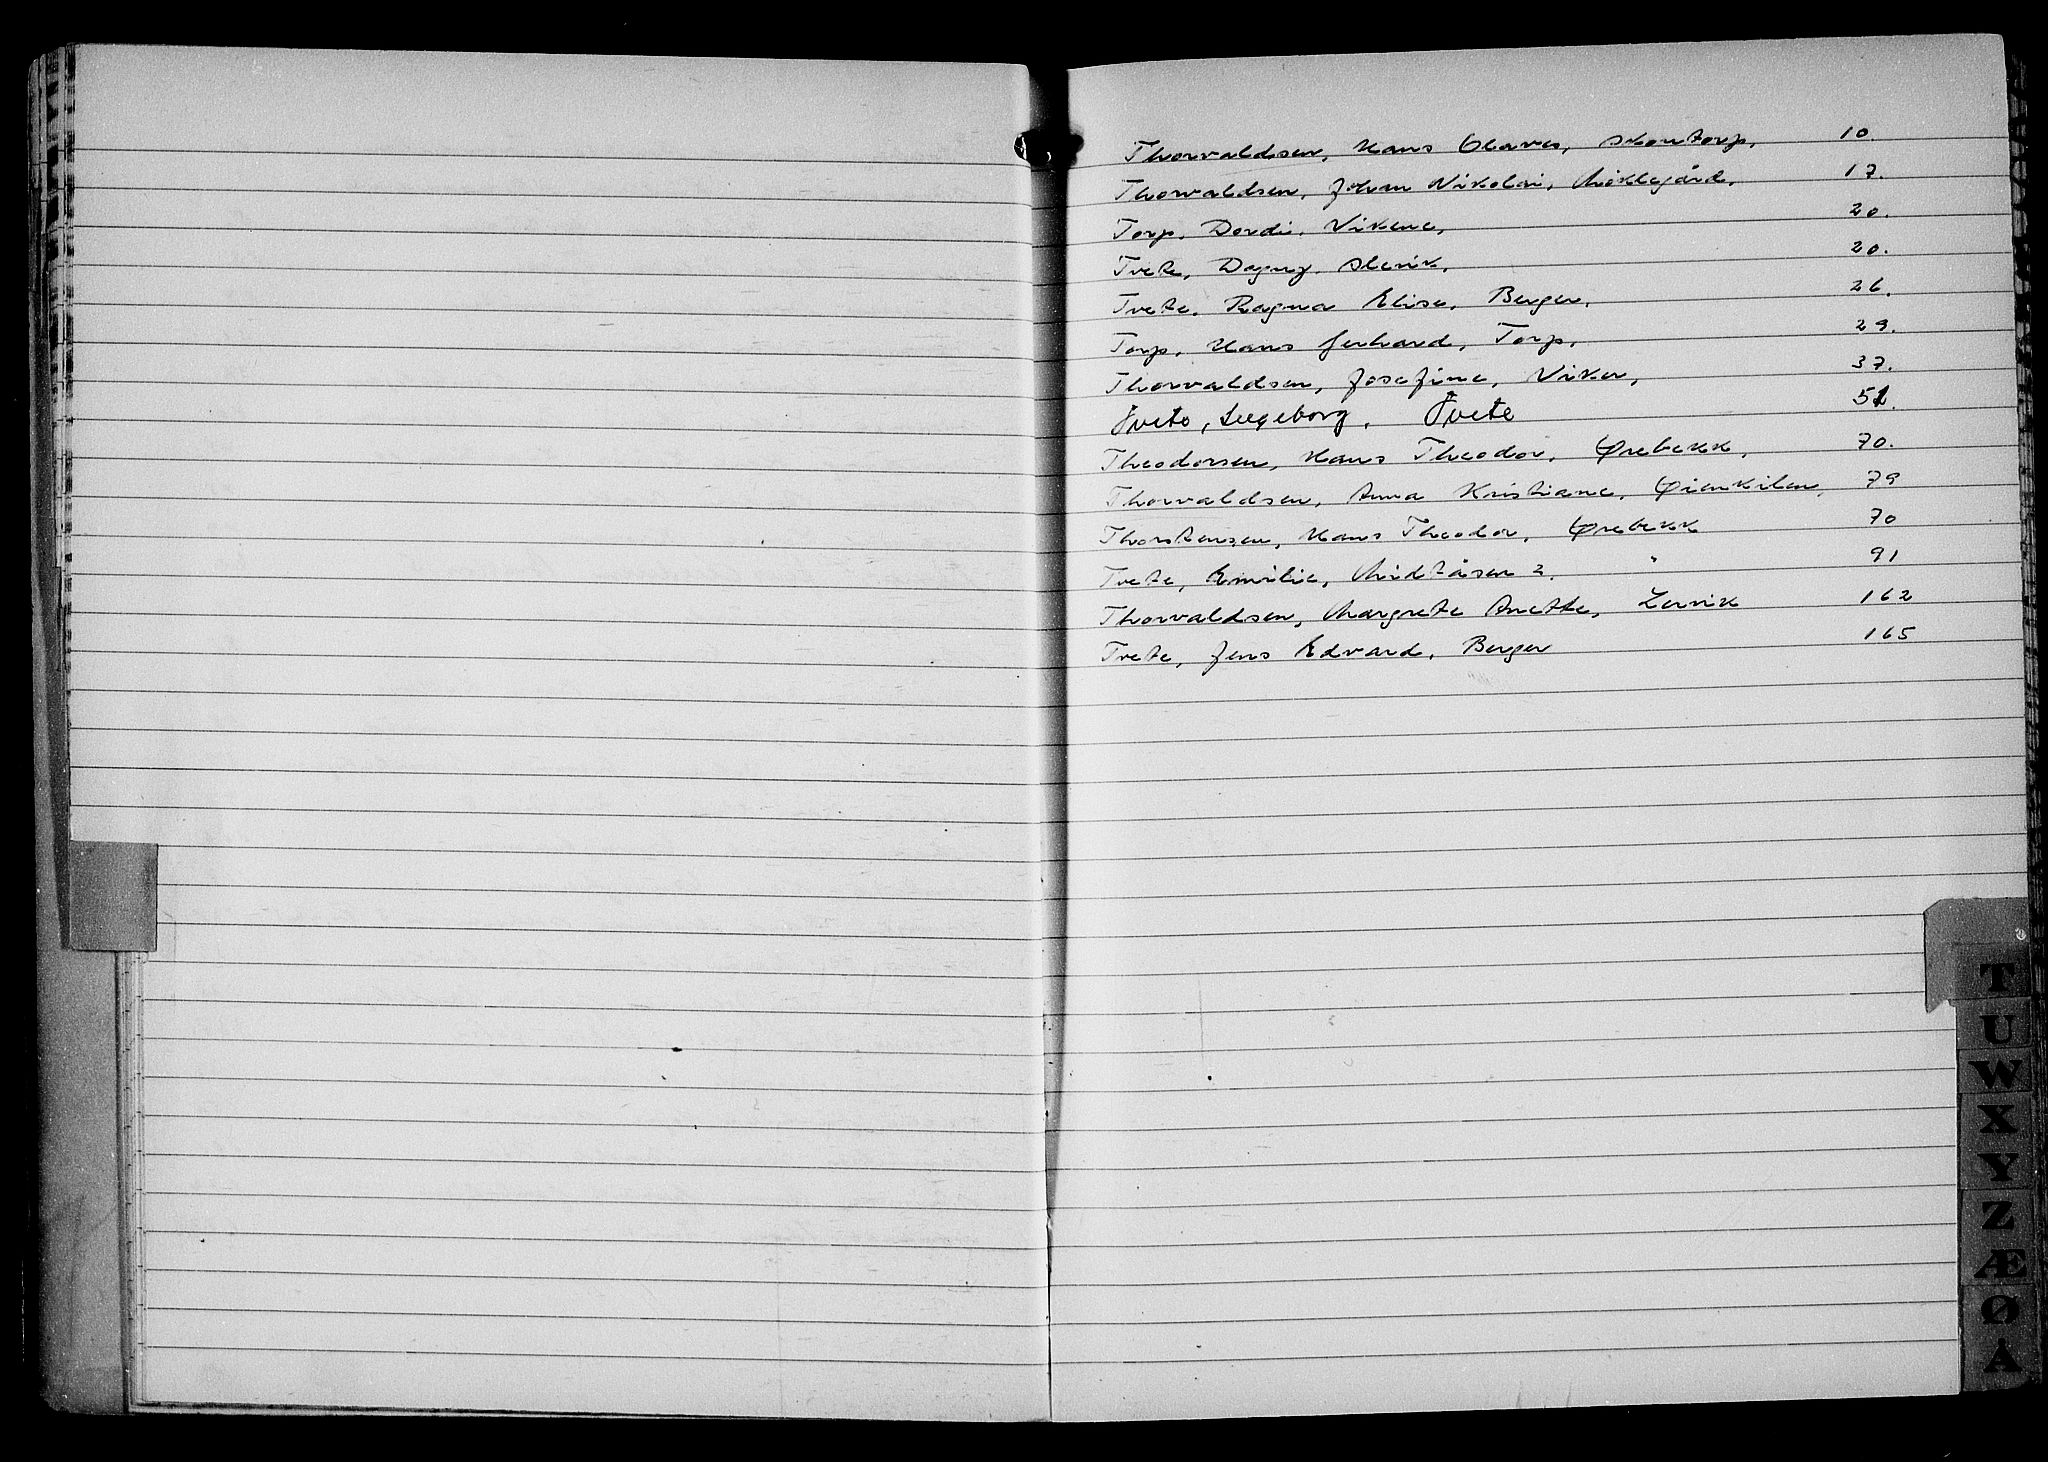 Thorvaldsen, Hans Olaves, Skontorp, 10.
Thorvaldsen, Johan Nikolai, Miklegård, 17.
Torp, Dordi, Vikene, 20.
Tvete, Dagny, Slevik, 20.
Tvete, Ragna Elise, Berger, 26.
Torp, Hans Gerhard, Torp, 29.
Thorvaldsen, Josefine, Viker, 37.
Tvete, Ingeborg, Tvete 51.
Theodorsen, Hans Theodor, Ørebekk, 70.
Thorvaldsen, Anna Kristiane, Øienkilen, 79
Thorstensen, Hans Theodor, Ørebekk 70
Tvete, Emilie, Midtåsen 2. " 91
Thorvaldsen, Margrete Anette, Lervik 162
Tvete, Jens Edvard, Berger 165
T
U
W
X
Y
Z
Æ
Ø
Å